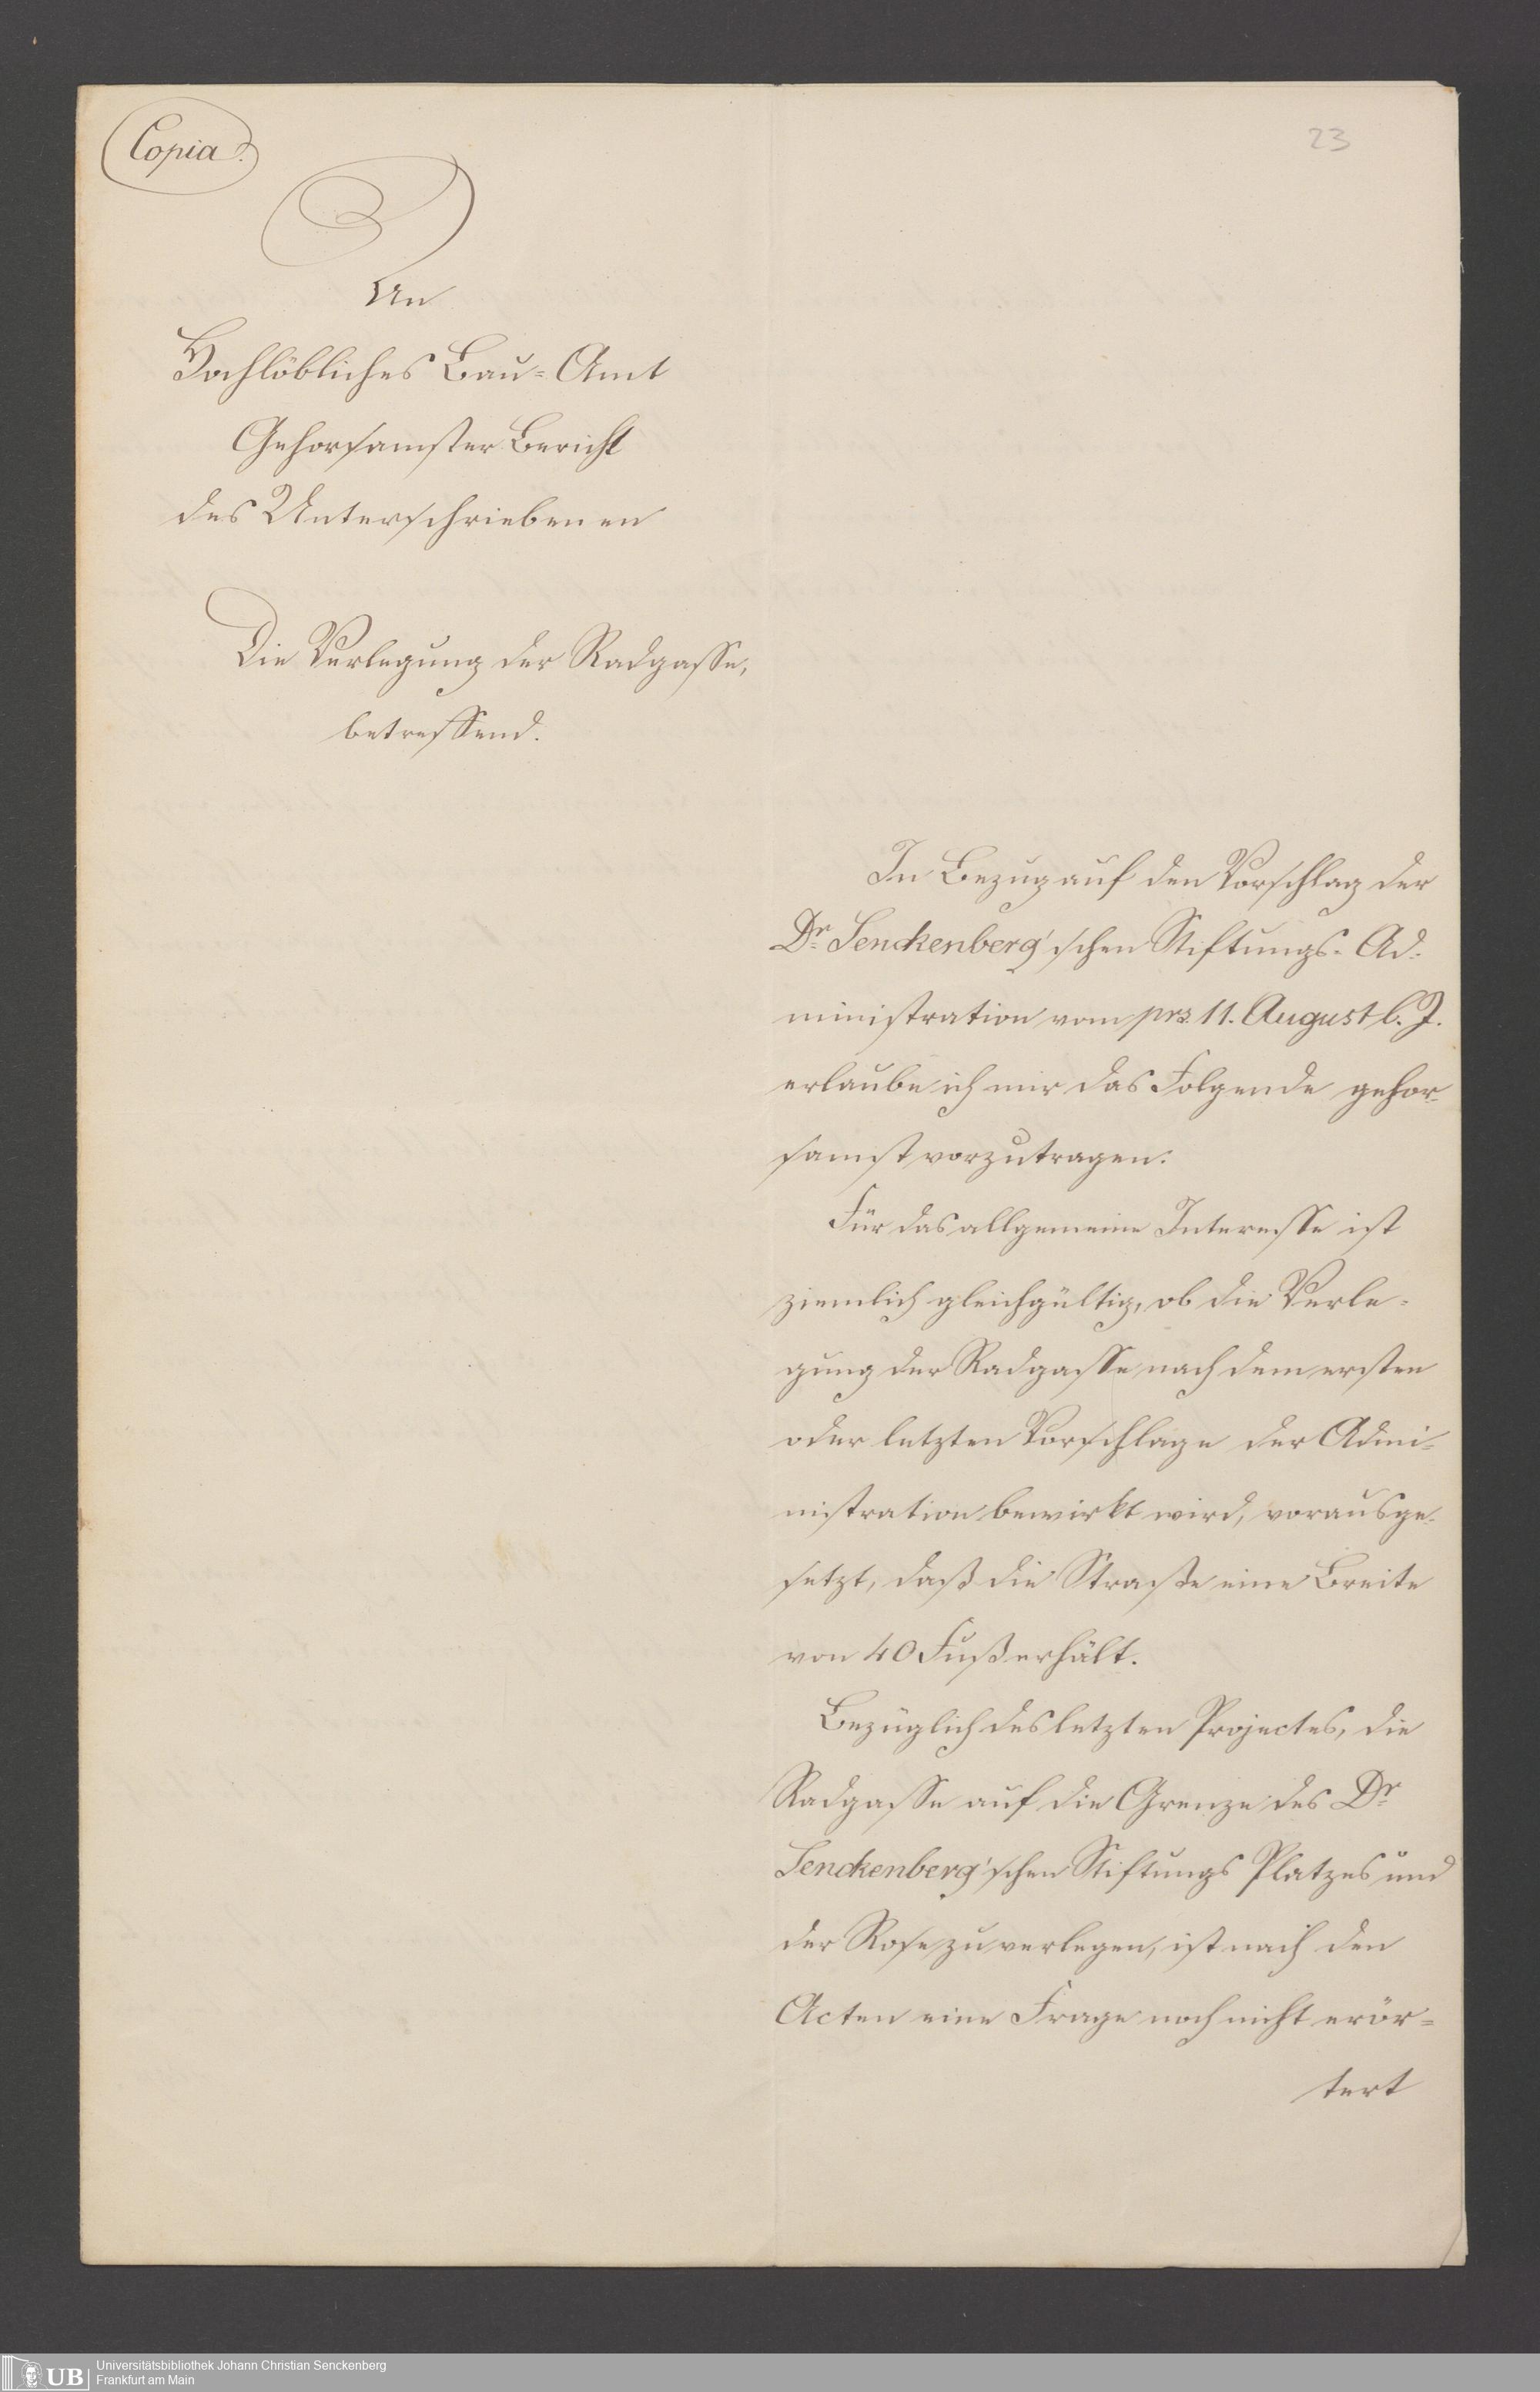 Copia.
23
An
Hochlöbliches Bau-Amt
Gehorsamster Bericht
des Unterschriebenen
Die Verlegung der Radgasse,
betreffend.
In Bezug auf den Vorschlag der
Dr. Senckenberg'schen Stiftungs-Ad-
ministration vom prs. 11. August l. J.
erlaube ich mir das Folgende gehor-
samst vorzutragen:
Für das allgemeine Interesse ist
ziemlich gleichgültig, ob die Verle-
gung der Radgasse nach dem ersten
oder letzten Vorschlage der Admi-
nistration bewirkt wird, vorausge-
setzt, daß die Straße eine Breite
von 40 Fuß erhält.
Bezüglich des letzten Projectes, die
Radgasse auf die Grenze des Dr.
Senckenberg'schen Stiftungs Platzes und
der Rose zu verlegen, ist nach den
Acten eine Frage noch nicht erör-
tert
UB
Universitätsbibliothek Johann Christian Senckenberg
Frankfurt am Main